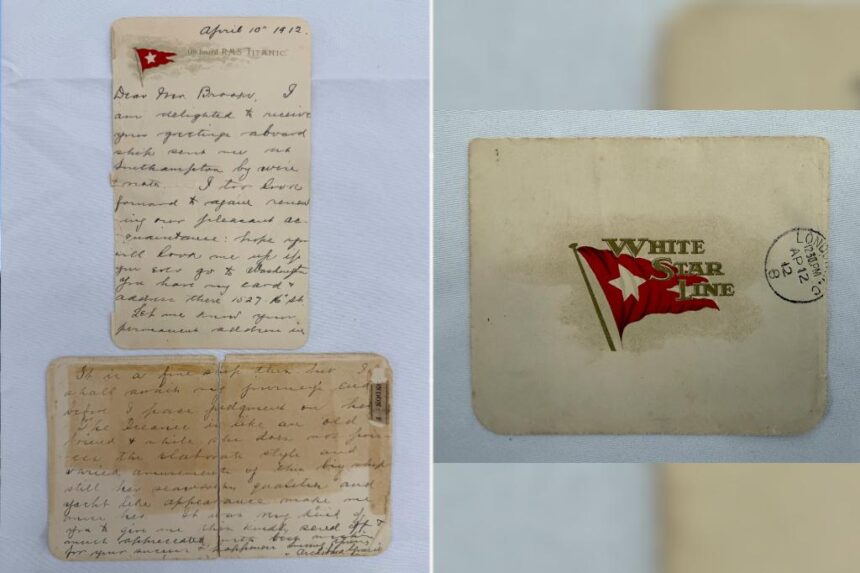 April 10th 1912.
On board R.M.S. TITANIC.
Dear Mr. I
am delighted to receive
your greetings aboard
ship sent me at
Southampton by wire
& note. I too look
forward to again renew
ing our pleasant ac-
quaintance: hope you
will look me up if
you ever go to Washington
You have my card &
address there 1527 16th St.
Let me know your
permanent address in
It is a fine ship but I
shall await my journeys end
before I pass judgment on her.
The Oceanic is like an old
friend & while she does not poss
ess the elaborate style and
varied amusements of this big ship
still her seaworthy qualities and
yacht like appearance make me
miss her. It was very kind of
you to give me this kindly send off &
much appreciated with best wishes
for your success & happiness
Archibald Gracie
WHITE
STAR
LINE
LONDON
12.30PM
AP 12
12
8